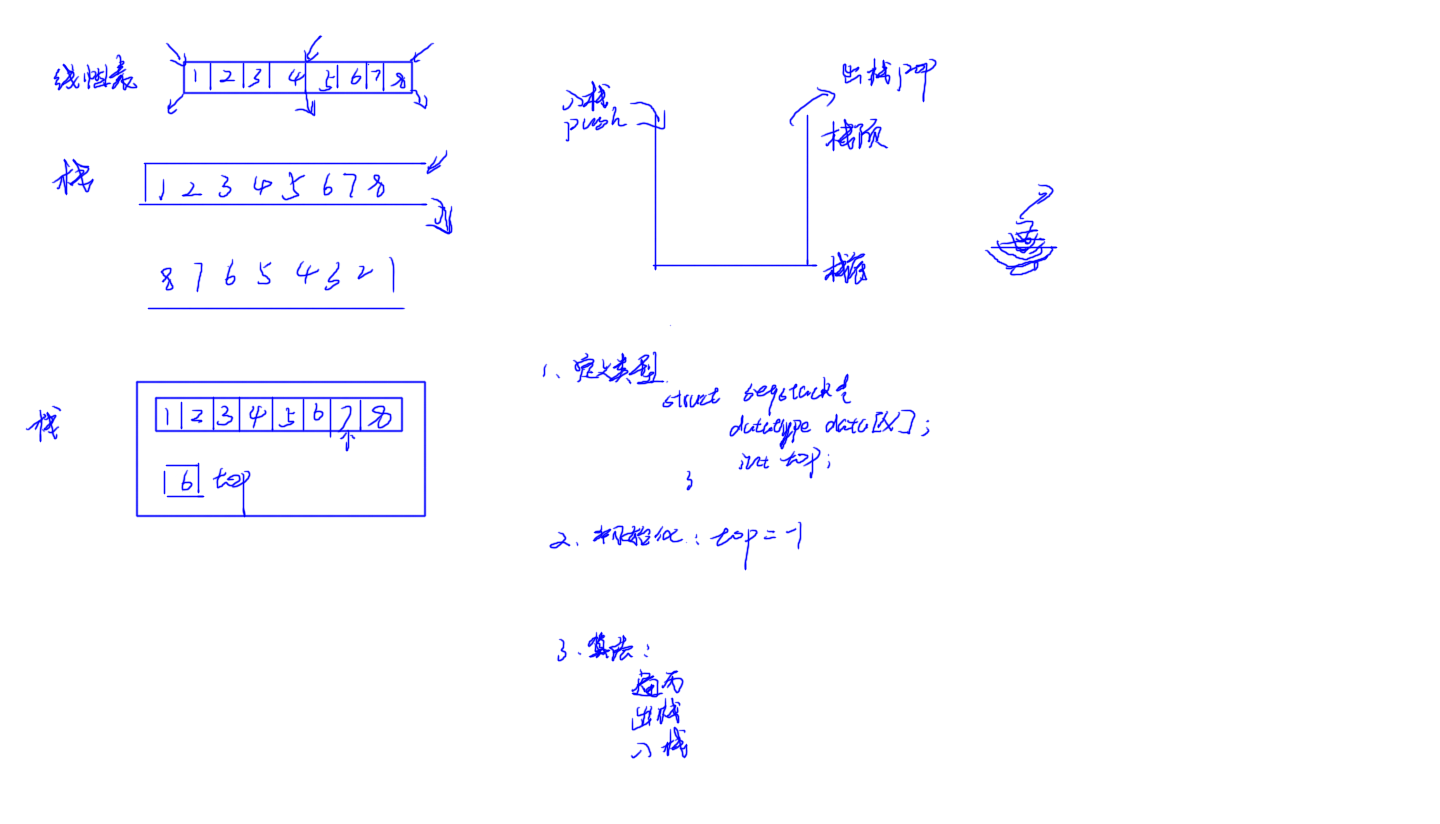 线性表 1 2 3 4 5 6 7 8
栈 1 2 3 4 5 6 7 8
8 7 6 5 4 3 2 1
栈 1 2 3 4 5 6 7 8
6 top
入栈
push
出栈 pop
栈顶
栈底
1、定义类型
struct seqstack {
datatype data[X];
int top;
}
2、初始化：top = -1
3、算法：
遍历
出栈
入栈